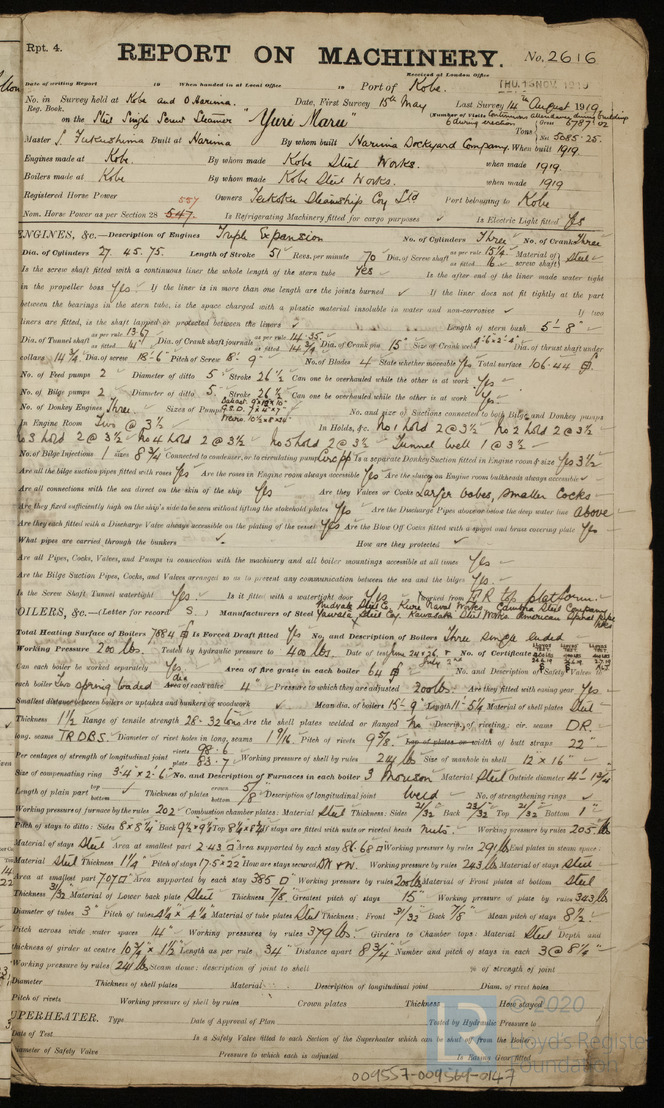 Rpt. 4.
REPORT ON MACHINERY. No. 2616
Received at London Office
THU. 13 NOV. 1919
Date of writing Report 19 When handed in at Local Office 19 Port of Kobe.
No. in Survey held at Kobe and O Harima. Date, First Survey 15th May Last Survey 14th August 1919
Reg. Book. (Number of Visits Continuous attendance during building & during erection
on the Steel Single Screw Steamer "Yuri Maru" Tons Gross 6787.02 Net 5085.25.
Master S. Fukushima Built at Harima By whom built Harima Dockyard Company. When built 1919.
Engines made at Kobe. By whom made Kobe Steel Works. when made 1919.
Boilers made at Kobe By whom made Kobe Steel Works. when made 1919
Registered Horse Power Owners Teikoku Steamship Coy Ltd Port belonging to Kobe
Nom. Horse Power as per Section 28 547. 557 Is Refrigerating Machinery fitted for cargo purposes ✓ Is Electric Light fitted Yes
ENGINES, &c.—Description of Engines Triple Expansion No. of Cylinders Three No. of Cranks Three
Dia. of Cylinders 27. 45. 75. Length of Stroke 51 Revs. per minute 70 Dia. of Screw shaft as per rule 15¼ as fitted 16 Material of screw shaft Steel
Is the screw shaft fitted with a continuous liner the whole length of the stern tube Yes Is the after end of the liner made water tight
in the propeller boss Yes If the liner is in more than one length are the joints burned ✓ If the liner does not fit tightly at the part
between the bearings in the stern tube, is the space charged with a plastic material insoluble in water and non-corrosive ✓ If two
liners are fitted, is the shaft lapped or protected between the liners ✓ Length of stern bush 5'-8"
Dia. of Tunnel shaft as per rule 13.67 as fitted 14" Dia. of Crank shaft journals as per rule 14.35 as fitted 14¾ Dia. of Crank pin 15" Size of Crank webs Dia. of thrust shaft under
collars 14¾ Dia. of screw 18'-6" Pitch of Screw 18'-9" No. of Blades 4 State whether moveable Yes Total surface 106.44
No. of Feed pumps 2 Diameter of ditto 5 Stroke 26½ Can one be overhauled while the other is at work Yes
No. of Bilge pumps 2 Diameter of ditto 5 Stroke 26½ Can one be overhauled while the other is at work Yes
No. of Donkey Engines Three Sizes of Pumps No. and size of Suctions connected to both Bilge and Donkey pumps
In Engine Room Two @ 3½ In Holds, &c. No 1 hold 2 @ 3½ No 2 hold 2 @ 3½
No 3 hold 2 @ 3½ No 4 hold 2 @ 3½ No 5 hold 2 @ 3½ Tunnel well 1 @ 3½
No. of Bilge Injections 1 sizes 8¾ Connected to condenser, or to circulating pump Circ pp Is a separate Donkey Suction fitted in Engine room & size Yes 3½
Are all the bilge suction pipes fitted with roses Yes Are the roses in Engine room always accessible Yes Are the sluices on Engine room bulkheads always accessible ✓
Are all connections with the sea direct on the skin of the ship Yes Are they Valves or Cocks Larger valves, smaller cocks
Are they fixed sufficiently high on the ship's side to be seen without lifting the stokehold plates Yes Are the Discharge Pipes above or below the deep water line above
Are they each fitted with a Discharge Valve always accessible on the plating of the vessel Yes Are the Blow Off Cocks fitted with a spigot and brass covering plate Yes
What pipes are carried through the bunkers ✓ How are they protected ✓
Are all Pipes, Cocks, Valves, and Pumps in connection with the machinery and all boiler mountings accessible at all times Yes
Are the Bilge Suction Pipes, Cocks, and Valves arranged so as to prevent any communication between the sea and the bilges Yes.
Is the Screw Shaft Tunnel watertight Yes. Is it fitted with a watertight door Yes worked from E.R. top platform.
BOILERS, &c.—(Letter for record S.) Manufacturers of Steel Midvale Steel Co, Kure Naval Works, Cambria Steel Company, Yawata Steel Co. Kawasaki Steel Works American
Total Heating Surface of Boilers 7884 Is Forced Draft fitted Yes No. and Description of Boilers Three single ended
Working Pressure 200 lbs. Tested by hydraulic pressure to 400 lbs. Date of test June 24 & 26 & July 2nd No. of Certificate
Can each boiler be worked separately Yes Area of fire grate in each boiler 64 No. and Description of Safety Valves to
each boiler Two spring loaded Area of each valve dia 4" Pressure to which they are adjusted 200 lbs Are they fitted with easing gear Yes
Smallest distance between boilers or uptakes and bunkers or woodwork ✓ Mean dia. of boilers 15'-9" Length 11'-5¼ Material of shell plates Steel
Thickness 1½ Range of tensile strength 28-32 tons Are the shell plates welded or flanged No Descrip. of riveting: cir. seams D.R.
long. seams TR.D.B.S. Diameter of rivet holes in long. seams 1 9/16 Pitch of rivets 9⅝ Lap of plates or width of butt straps 22"
Per centages of strength of longitudinal joint rivets 98.6 plate 83.7 Working pressure of shell by rules 214 lbs Size of manhole in shell 12 × 16"
Size of compensating ring 3'-4 × 2'-6 No. and Description of Furnaces in each boiler 3 Morison Material Steel Outside diameter 4'-1¾
Length of plain part top bottom ✓ Thickness of plates crown bottom 5/8 Description of longitudinal joint Weld No. of strengthening rings ✓
Working pressure of furnace by the rules 202 Combustion chamber plates: Material Steel Thickness: Sides 21/32 Back 23/32 Top 21/32 Bottom 1"
Pitch of stays to ditto: Sides 8 × 8¼ Back 9½ × 9¼ Top 8¼ × 8¼ If stays are fitted with nuts or riveted heads Nuts. Working pressure by rules 205 lbs
Material of stays Steel Area at smallest part 2.43 Area supported by each stay 86.68 Working pressure by rules 291 lbs End plates in steam space:
Material Steel Thickness 1¼ Pitch of stays 17.5 × 22 How are stays secured DN & W. Working pressure by rules 243 lbs Material of stays Steel
Area at smallest part 7.07 Area supported by each stay 385 Working pressure by rules 200 lbs Material of Front plates at bottom Steel
Thickness 31/32 Material of Lower back plate Steel Thickness 7/8 Greatest pitch of stays 15" Working pressure of plate by rules 343 lbs
Diameter of tubes 3" Pitch of tubes 4¼ × 4¼ Material of tube plates Steel Thickness: Front 31/32 Back 7/8 Mean pitch of stays 8½
Pitch across wide water spaces 14" Working pressures by rules 379 lbs. Girders to Chamber tops: Material Steel Depth and
thickness of girder at centre 10¾ × 1½ Length as per rule 34" Distance apart 8¾ Number and pitch of stays in each 3 @ 8¼
Working pressure by rules 241 lbs Steam dome: description of joint to shell % of strength of joint
Diameter Thickness of shell plates Material Description of longitudinal joint Diam. of rivet holes
Pitch of rivets Working pressure of shell by rules Crown plates Thickness How stayed
SUPERHEATER. Type Date of Approval of Plan Tested by Hydraulic Pressure to
Date of Test Is a Safety Valve fitted to each Section of the Superheater which can be shut off from the Boiler
Diameter of Safety Valve Pressure to which each is adjusted Is Easing Gear fitted
LR
© 2020
Lloyd's Register
Foundation
009557-009569-0147